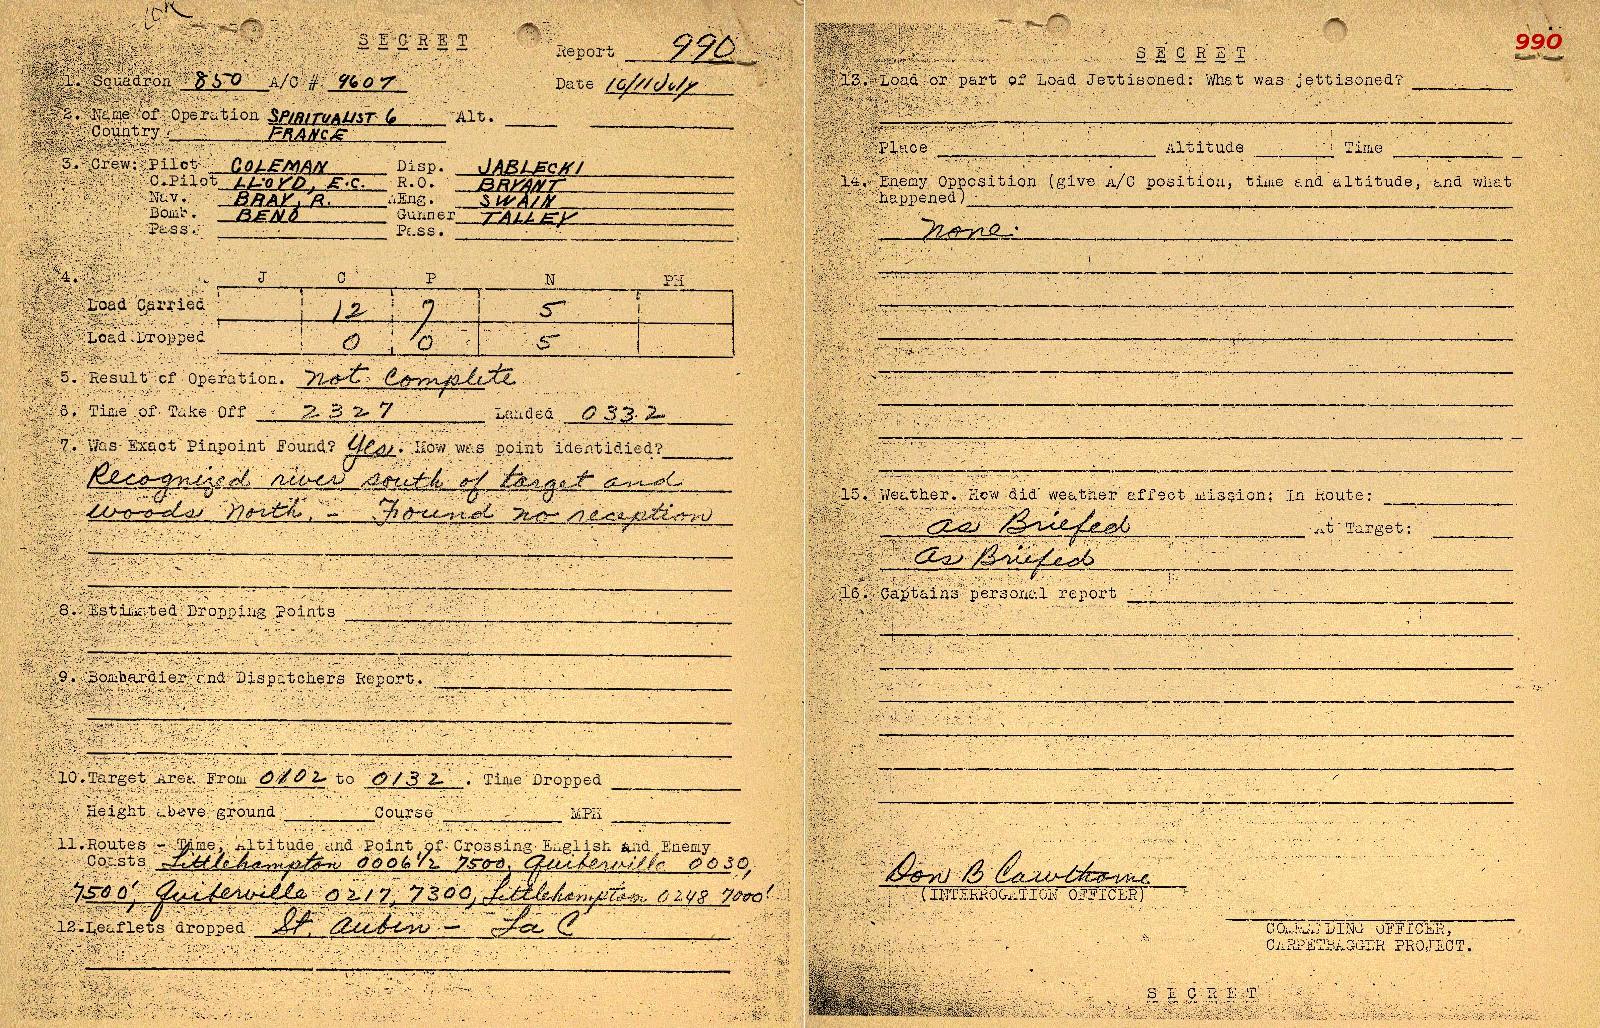 SECRET
Report 990
1. Squadron 850 A/C # 9607 Date 10/11 July
2. Name of Operation SPIRITUALIST 6 Alt.
Country FRANCE
3. Crew: Pilot COLEMAN Disp. JABLECKI
C.Pilot LLOYD, E.C. R.O. BRYANT
Nav. BRAY, R. Eng. SWAIN
Bomb. BENO Gunner TALLEY
Pass. Pass.
4. J C P N PH
Load Carried 12 7 5
Load Dropped 0 0 5
5. Result of Operation. Not Complete
6. Time of Take Off 2327 Landed 0332
7. Was Exact Pinpoint Found? Yes. How was point identidied?
Recognized river south of target and
woods North. - Found no reception
8. Estimated Dropping Points
9. Bombardier and Dispatchers Report.
10. Target Area From 0102 to 0132. Time Dropped
Height above ground Course MPH
11. Routes - Time, Altitude and Point of Crossing English and Enemy
Coasts Littlehampton 0006 1/2 7500, Quiberville 0030,
7500', Quiberville 0217, 7300, Littlehampton 0248 7000'
12. Leaflets dropped St. Aubin - La C
990
SECRET
13. Load or part of Load Jettisoned: What was jettisoned?
Place Altitude Time
14. Enemy Opposition (give A/C position, time and altitude, and what
happened)
None.
15. Weather. How did weather affect mission; In Route:
as Briefed At Target:
As Briefed
16. Captains personal report
Don B Cawthorne
(INTERROGATION OFFICER)
COMMANDING OFFICER,
CARPETBAGGER PROJECT.
SECRET